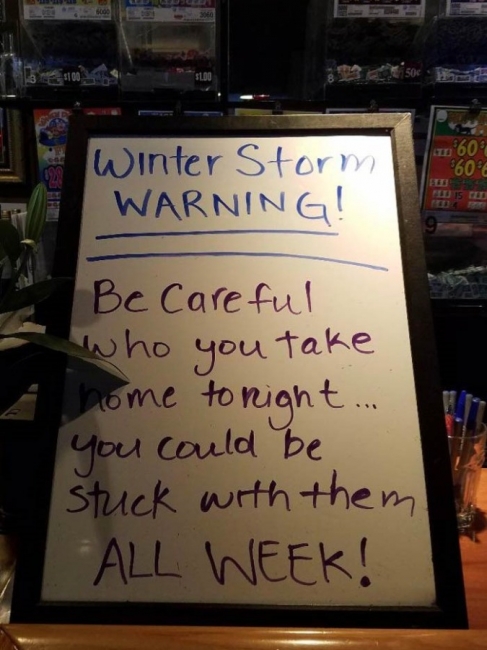 6080
3560
$1.00
$1.00
50¢
Winter Storm
WARNING!
Be Careful
who you take
home tonight...
you could be
stuck with them
ALL WEEK!
9